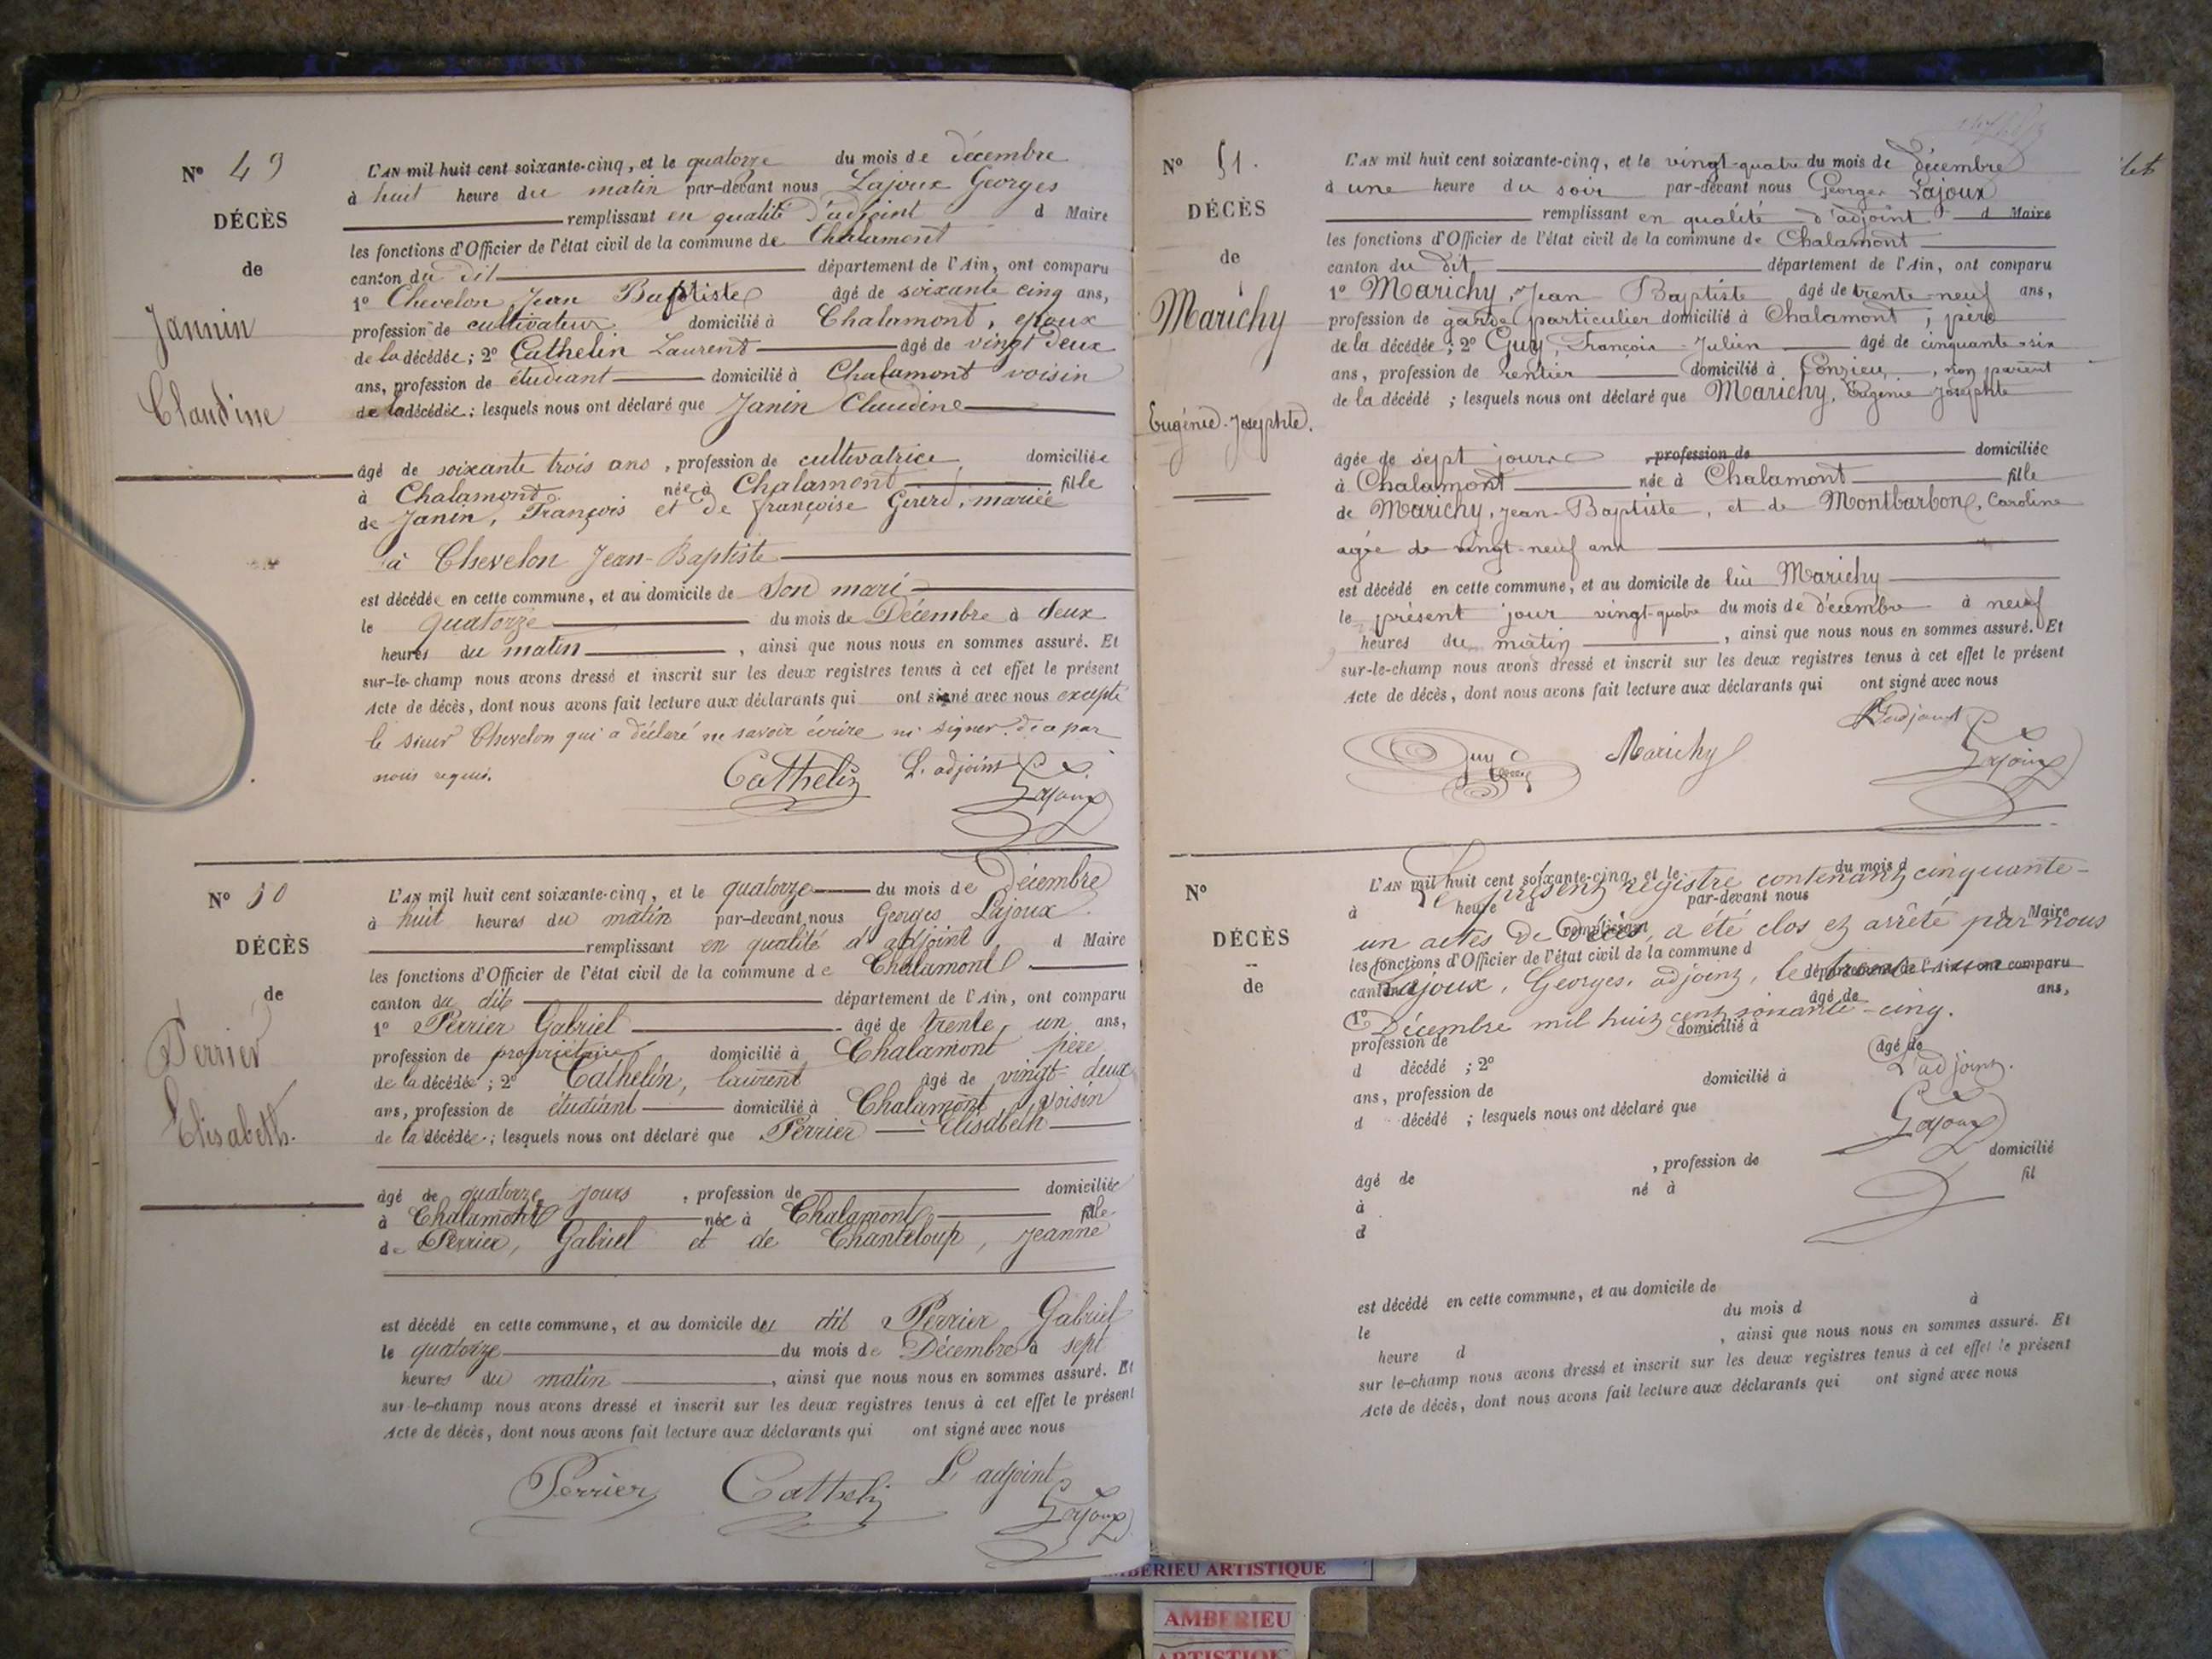 N° 49
DÉCÈS
de
Jannin
Claudine
L'AN mil huit cent soixante-cinq, et le quatorze du mois de décembre
à huit heure du matin par-devant nous Lajoux Georges
remplissant en qualité d'adjoint d Maire
les fonctions d'Officier de l'état civil de la commune de Chalamont
canton du dit département de l'Ain, ont comparu
1° Chevelon Jean Baptiste âgé de soixante cinq ans,
profession de cultivateur domicilié à Chalamont, epoux
de la décédée; 2° Cathelin Laurent âgé de vingt deux
ans, profession de étudiant domicilié à Chalamont voisin
de la décédée; lesquels nous ont déclaré que Janin Claudine
âgé de soixante trois ans, profession de cultivatrice domiciliée
à Chalamont née à Chalamont fille
de Janin, François et de françoise Gererd, mariée
à Chevelon Jean-Baptiste
est décédée en cette commune, et au domicile de Son mari
le quatorze du mois de Décembre à deux
heures du matin, ainsi que nous nous en sommes assuré. Et
sur-le-champ nous avons dressé et inscrit sur les deux registres tenus à cet effet le présent
Acte de décès, dont nous avons fait lecture aux déclarants qui ont signé avec nous excepté
le sieur Chevelon qui a déclaré ne savoir écrire ni signer. de a par
nous requis.
Cathelin L. adjoint
Lajoux
N° 50
DÉCÈS
de
Perrier
Elisabeth.
L'AN mil huit cent soixante-cinq, et le quatorze du mois de Décembre
à huit heures du matin par-devant nous Georges Lajoux
remplissant en qualité d'adjoint d Maire
les fonctions d'Officier de l'état civil de la commune de Chalamont
canton du dit département de l'Ain, ont comparu
1° Perrier Gabriel âgé de trente un ans,
profession de propriétaire domicilié à Chalamont père
de la décédée; 2° Cathelin, laurent âgé de vingt-deux
ans, profession de étudiant domicilié à Chalamont voisin
de la décédée; lesquels nous ont déclaré que Perrier Elisabeth
âgé de quatorze jours, profession de domiciliée
à Chalamont née à Chalamont fille
de Perrier, Gabriel et de Chanteloup, Jeanne
est décédé en cette commune, et au domicile du dit Perrier Gabriel
le quatorze du mois de Décembre à sept
heures du matin, ainsi que nous nous en sommes assuré. Et
sur-le-champ nous avons dressé et inscrit sur les deux registres tenus à cet effet le présent
Acte de décès, dont nous avons fait lecture aux déclarants qui ont signé avec nous
Perrier Cathelin L'adjoint
Lajoux
N° 51.
DÉCÈS
de
Marichy
Eugénie-Josephte.
L'AN mil huit cent soixante-cinq, et le vingt-quatre du mois de décembre
à une heure du soir par-devant nous Georges Lajoux
remplissant en qualité d'adjoint d Maire
les fonctions d'Officier de l'état civil de la commune de Chalamont
canton du dit département de l'Ain, ont comparu
1° Marichy, Jean Baptiste âgé de trente-neuf ans,
profession de garde particulier domicilié à Chalamont, père
de la décédée; 2° Guy, François-Julien âgé de cinquante-six
ans, profession de rentier domicilié à, non parent
de la décédé; lesquels nous ont déclaré que Marichy, Eugénie Josephte
âgée de sept jours, profession de domiciliée
à Chalamont née à Chalamont fille
de Marichy, Jean-Baptiste, et de Montbarbon, Caroline
agée de vingt-neuf ans
est décédé en cette commune, et au domicile de lui Marichy
le présent jour vingt-quatre du mois de décembre à neuf
heures du matin, ainsi que nous nous en sommes assuré. Et
sur-le-champ nous avons dressé et inscrit sur les deux registres tenus à cet effet le présent
Acte de décès, dont nous avons fait lecture aux déclarants qui ont signé avec nous
L'adjoint
Guy Marichy Lajoux
N°
DÉCÈS
de
L'AN mil huit cent soixante-cinq, et le du mois d
Le présent registre contenant cinquante-
à heure d par-devant nous
remplissant d Maire
un actes de décès, a été clos et arrêté par nous
les fonctions d'Officier de l'état civil de la commune d
canton département de l'Ain, ont comparu
Lajoux, Georges, adjoint, le trente un
1° âgé de ans,
Décembre mil huit cent soixante-cinq.
profession de domicilié à
d décédé; 2° âgé de
L'adjoint.
ans, profession de domicilié à
d décédé; lesquels nous ont déclaré que
Lajoux
âgé de, profession de domicilié
à né à fil
d
est décédé en cette commune, et au domicile de
le du mois d à
heure d, ainsi que nous nous en sommes assuré. Et
sur le-champ nous avons dressé et inscrit sur les deux registres tenus à cet effet le présent
Acte de décès, dont nous avons fait lecture aux déclarants qui ont signé avec nous
AMBERIEU ARTISTIQUE
AMBERIEU
ARTISTIQUE